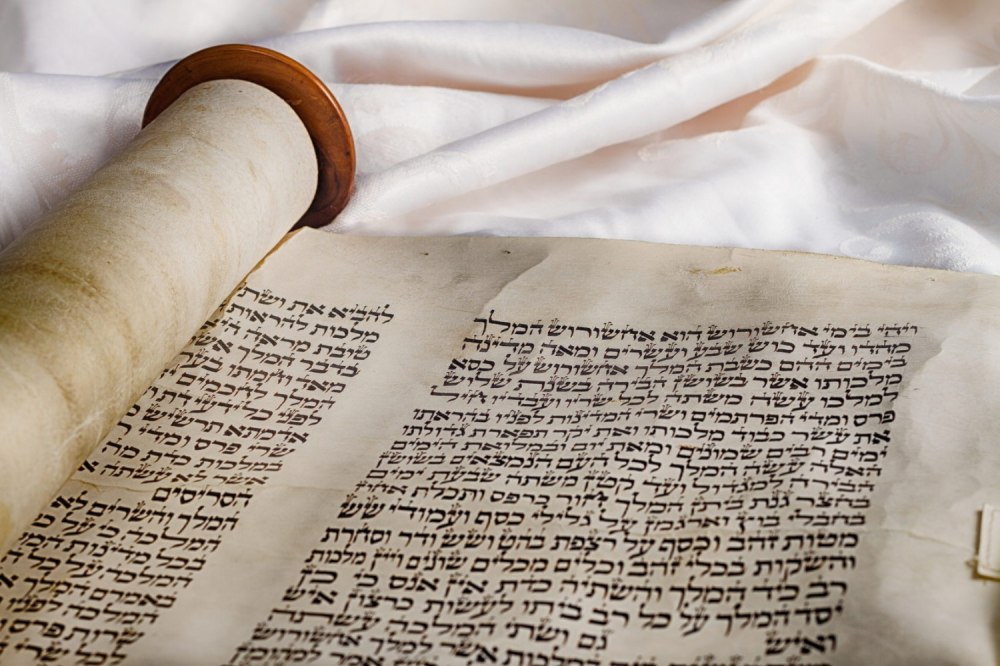 ויהי בימי אחשורוש הוא אחשורוש המלך
מהדו ועד כוש שבע ועשרים ומאה מדינה
בימים ההם כשבת המלך אחשורוש על כסא
מלכותו אשר בשושן הבירה בשנת שלוש
למלכו עשה משתה לכל שריו ועבדיו חיל
פרס ומדי הפרתמים ושרי המדינות לפניו בהראתו
את עשר כבוד מלכותו ואת יקר תפארת גדולתו
ימים רבים שמונים ומאת יום ובמלואת הימים
האלה עשה המלך לכל העם הנמצאים בשושן
הבירה למגדול ועד קטן משתה שבעת ימים
בחצר גנת ביתן המלך חור כרפס ותכלת אחוז
בחבלי בוץ וארגמן על גלילי כסף ועמודי שש
מטות זהב וכסף על רצפת בהט ושש ודר וסחרת
והשקות בכלי זהב וכלים מכלים שונים ויין מלכות
רב כיד המלך והשתיה כדת אין אנס כי כן
יסד המלך על כל רב ביתו לעשות כרצון איש
ואיש גם ושתי המלכה
למלך אחשורוש
להביא את ושתי
מלכות להראות
טובת מראה
בדבר המלך אשר
מאד וחמתו
המלך לחכמים
לפני כל ידעי דת
אדמתא תרשיש
שרי פרס ומדי
במלכות כדת מה
אשר לא עשתה
הסריסים
המלך והשרים לא
המלכה כי על
בכל מדינות המלך
המלכה על כל
המלך אחשורוש אמר
המלכה לפניו
שרות פרס ומדי
לכל שרי המלך